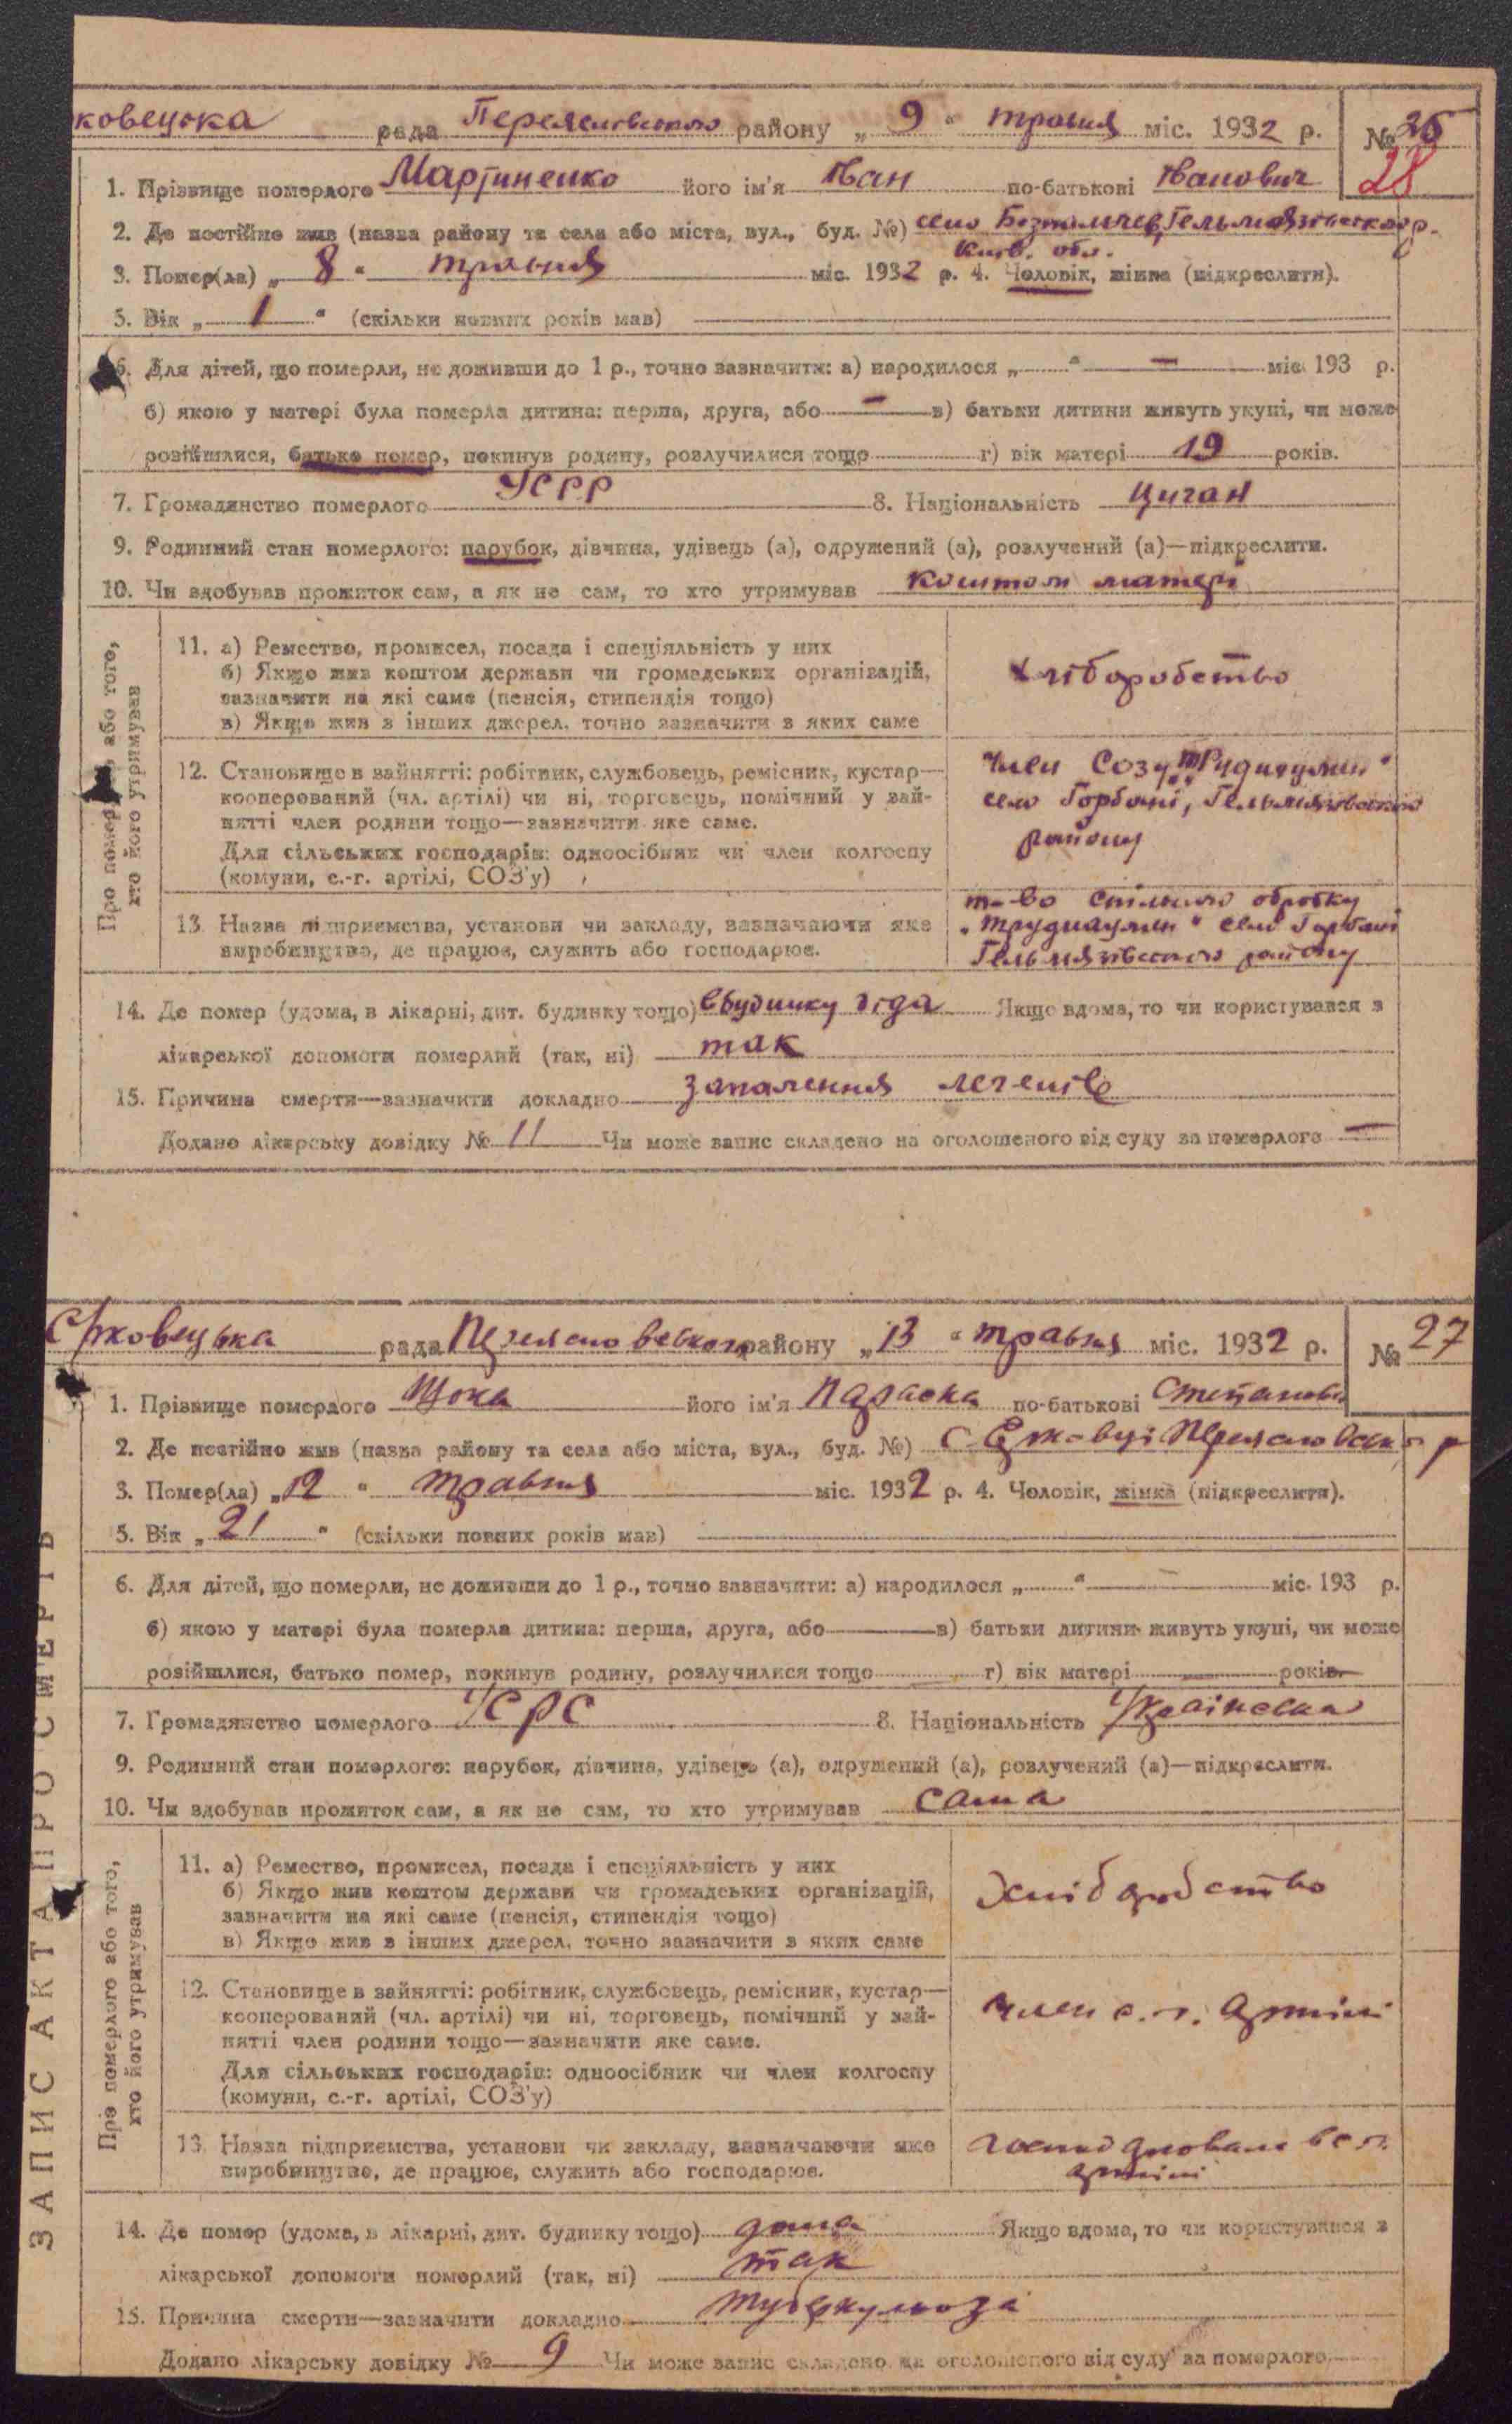 ковецька рада Переяславського району „ 9 “ травня міс. 1932 р. № 26
28
1. Прізвище померлого Мартиненко його ім'я Іван по-батькові Іванович
2. Де постійно жив (назва району та села або міста, вул., буд. №) село Безпальчев, Гельмязівського р.
Київ. обл.
3. Помер(ла) „ 8 “ травня міс. 1932 р. 4. Чоловік, жінка (підкреслити).
5. Вік „ 1 “ (скільки повних років мав)
6. Для дітей, що померли, не доживши до 1 р., точно зазначити: а) народилося „ “ — міс. 193 р.
б) якою у матері була померла дитина: перша, друга, або — в) батьки дитини живуть укупі, чи може
розійшлися, батько помер, покинув родину, розлучилися тощо г) вік матері 19 років.
7. Громадянство померлого УСРР 8. Національність циган
9. Родинний стан померлого: парубок, дівчина, удівець (а), одружений (а), розлучений (а)—підкреслити.
10. Чи здобував прожиток сам, а як не сам, то хто утримував коштом матері
Про померлого або того, хто його утримував
11. а) Ремество, промисел, посада і спеціяльність у них
б) Якщо жив коштом держави чи громадських організацій,
зазначити на які саме (пенсія, стипендія тощо)
в) Якщо жив з інших джерел, точно зазначити з яких саме
хліборобство
12. Становище в занятті: робітник, службовець, ремісник, кустар—
кооперований (чл. артілі) чи ні, торговець, помічний у зай-
нятті член родини тощо—зазначити яке саме.
Для сільських господарів: одноосібник чи член колгоспу
(комуни, с.-г. артілі, СОЗ'у)
член Созу
село Горбані, Гельмязівського
району
13. Назва підприємства, установи чи закладу, зазначаючи яке
виробництво, де працює, служить або господарює.
т-во спільного обробку
село Горбані
Гельмязівського району
14. Де помер (удома, в лікарні, дит. будинку тощо) в будинку діда Якщо вдома, то чи користувався з
лікарської допомоги померлий (так, ні) так
15. Причина смерти—зазначити докладно запалення легенів
Додано лікарську довідку № 11 Чи може запис складено на оголошеного від суду за померлого —
ЗАПИС АКТА ПРО СМЕРТЬ
рада Переяславського району „ 13 “ травня міс. 1932 р. № 27
1. Прізвище померлого Щока його ім'я Параска по-батькові Степанов
2. Де постійно жив (назва району та села або міста, вул., буд. №) с. Переяславськ р
3. Помер(ла) „ 12 “ травня міс. 1932 р. 4. Чоловік, жінка (підкреслити).
5. Вік „ 21 “ (скільки повних років мав)
6. Для дітей, що померли, не доживши до 1 р., точно зазначити: а) народилося „ “ — міс. 193 р.
б) якою у матері була померла дитина: перша, друга, або в) батьки дитини живуть укупі, чи може
розійшлися, батько помер, покинув родину, розлучилися тощо г) вік матері — років.
7. Громадянство померлого УСРС 8. Національність Українська
9. Родинний стан померлого: парубок, дівчина, удівець (а), одружений (а), розлучений (а)—підкреслити.
10. Чи здобував прожиток сам, а як не сам, то хто утримував сама
Про померлого або того, хто його утримував
11. а) Ремество, промисел, посада і спеціяльність у них
б) Якщо жив коштом держави чи громадських організацій,
зазначити на які саме (пенсія, стипендія тощо)
в) Якщо жив з інших джерел, точно зазначити з яких саме
Хліборобство
12. Становище в занятті: робітник, службовець, ремісник, кустар—
кооперований (чл. артілі) чи ні, торговець, помічний у зай-
нятті член родини тощо—зазначити яке саме.
Для сільських господарів: одноосібник чи член колгоспу
(комуни, с.-г. артілі, СОЗ'у)
член с. г. артілі
13. Назва підприємства, установи чи закладу, зазначаючи яке
виробництво, де працює, служить або господарює.
господарювала в с. г.
артілі
14. Де помер (удома, в лікарні, дит. будинку тощо) дома Якщо вдома, то чи користувався з
лікарської допомоги померлий (так, ні) так
15. Причина смерти—зазначити докладно туберкульоза
Додано лікарську довідку № 9 Чи може запис складено на оголошеного від суду за померлого